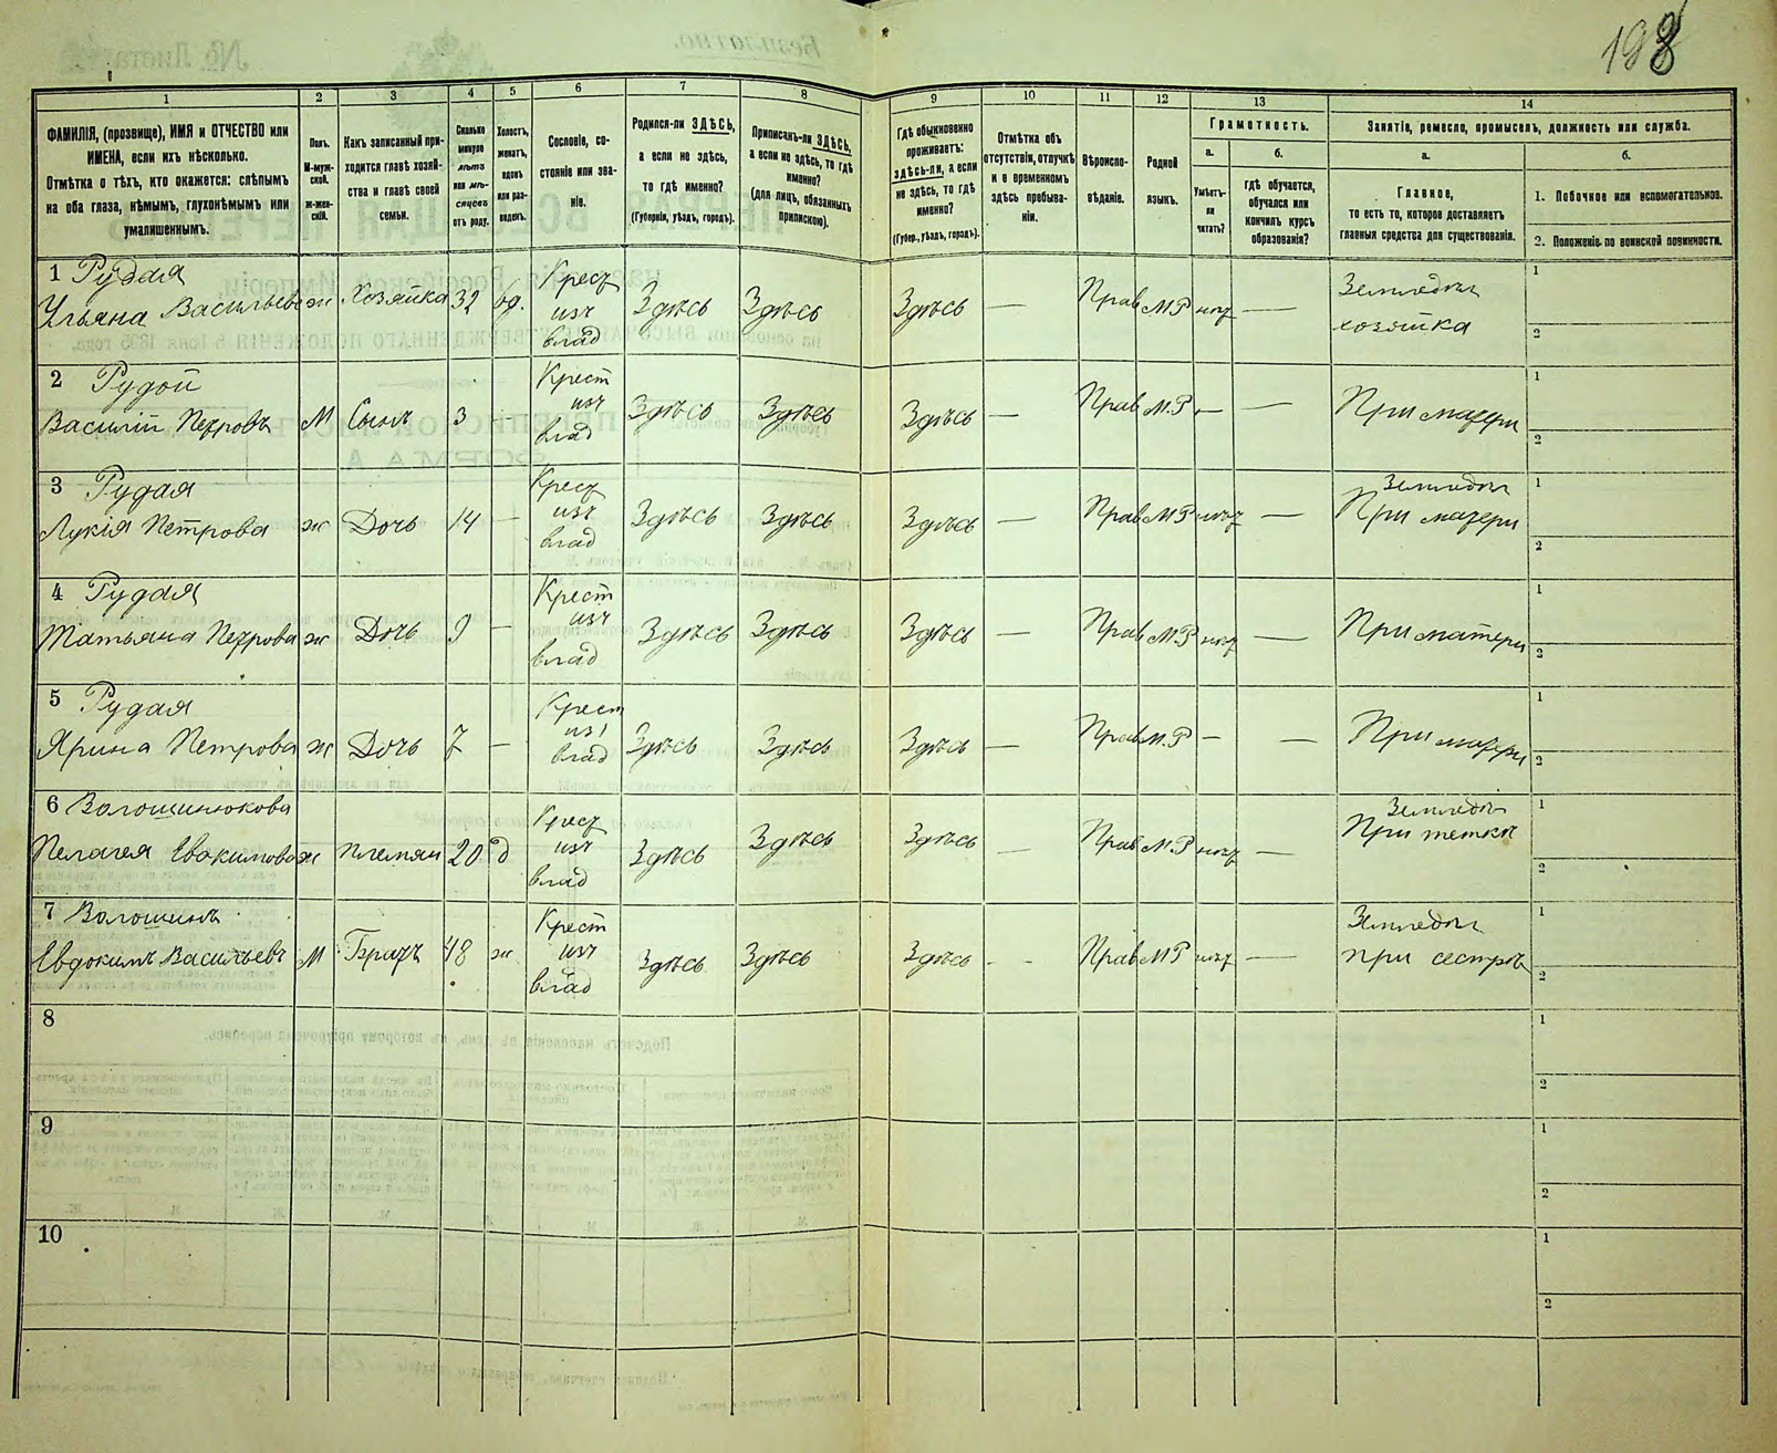 198
1 2 3 4 5 6 7 8 9 10 11 12 13 14
ФАМИЛІЯ, (прозвище), ИМЯ и ОТЧЕСТВО или
ИМЕНА, если ихъ нѣсколько.
Отмѣтка о тѣхъ, кто окажется: слѣпымъ
на оба глаза, нѣмымъ, глухонѣмымъ или
умалишеннымъ.
Полъ.
М-муж-
ской.
Ж-жен-
скій.
Какъ записанный при-
ходится главѣ хозяй-
ства и главѣ своей
семьи.
Сколько
минуло
лѣтъ
или мѣ-
сяцевъ
отъ роду.
Холостъ,
женатъ,
вдовъ
или раз-
веденъ.
Сословіе, со-
стояніе или зва-
ніе.
Родился-ли ЗДѢСЬ,
а если не здѣсь,
то гдѣ именно?
(Губернія, уѣздъ, городъ).
Приписанъ-ли ЗДѢСЬ,
а если не здѣсь, то гдѣ
именно?
(для лицъ, обязанныхъ
припискою).
Гдѣ обыкновенно
проживаетъ:
здѣсь-ли, а если
не здѣсь, то гдѣ
именно?
(Губер., уѣздъ, городъ).
Отмѣтка объ
отсутствіи, отлучкѣ
и о временномъ
здѣсь пребыва-
ніи.
Вѣроиспо-
вѣданіе.
Родной
языкъ.
Грамотность.
а.
Умѣетъ-
ли
читать?
б.
гдѣ обучается,
обучался или
кончилъ курсъ
образованія?
Занятіе, ремесло, промыселъ, должность или служба.
а.
Главное,
то есть то, которое доставляетъ
главныя средства для существованія.
б.
1. Побочное или вспомогательное.
2. Положеніе по воинской повинности.
1 Рудая
Ульяна Васильева ж Хозяйка 32 вд. Крест изъ влад Здѣсь Здѣсь Здѣсь — Прав М.Р нѣт — Земледѣл хозяйка 1 2
2 Рудой
Василій Петровъ М Сынъ 3 - Крест изъ влад Здѣсь Здѣсь Здѣсь — Прав М.Р — — При матери 1 2
3 Рудая
Лукія Петрова ж Дочь 14 — Крест изъ влад Здѣсь Здѣсь Здѣсь — Прав М.Р нѣт — Земледѣл При матери 1 2
4 Рудая
Татьяна Петрова ж Дочь 9 — Крест изъ влад Здѣсь Здѣсь Здѣсь — Прав М.Р нѣт — При матери 1 2
5 Рудая
Ярина Петрова ж Дочь 7 — Крест изъ влад Здѣсь Здѣсь Здѣсь — Прав М.Р — — При матери 1 2
6 Волошинюкова
Пелагея Евокимова ж племян 20 д Крест изъ влад Здѣсь Здѣсь Здѣсь — Прав М.Р нѣт — Земледѣл При теткѣ 1 2
7 Волошинъ
Евдокимъ Васильевъ М Братъ 48 ж Крест изъ влад Здѣсь Здѣсь Здѣсь - - Прав М.Р нѣт — Земледѣл при сестрѣ 1 2
8 1 2
9 1 2
10 1 2